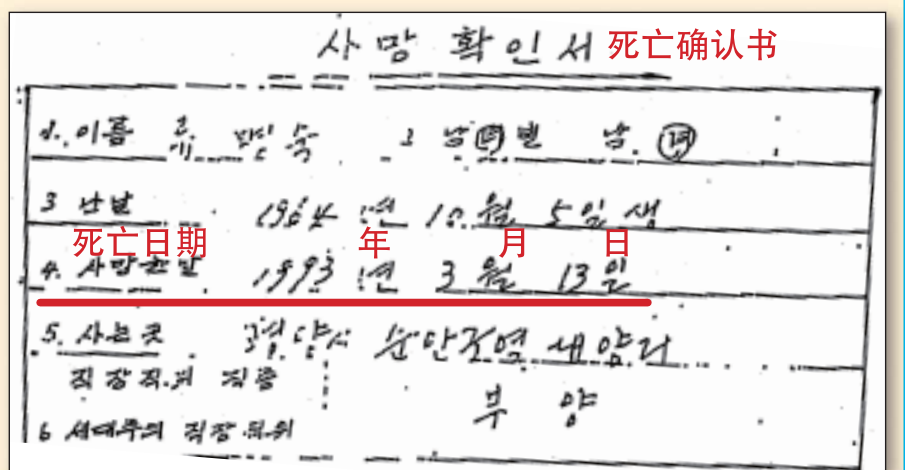 사망확인서 死亡确认书
1. 이름 류 명숙 2 남녀별 남. 녀
3 난날 1964년 10월 5일생
死亡日期 年 月 日
4. 사망한날 1993년 3월 13일
5. 사는곳 평양시 순안구역
직장직위 직종
부양
6 세대주의 직장직위